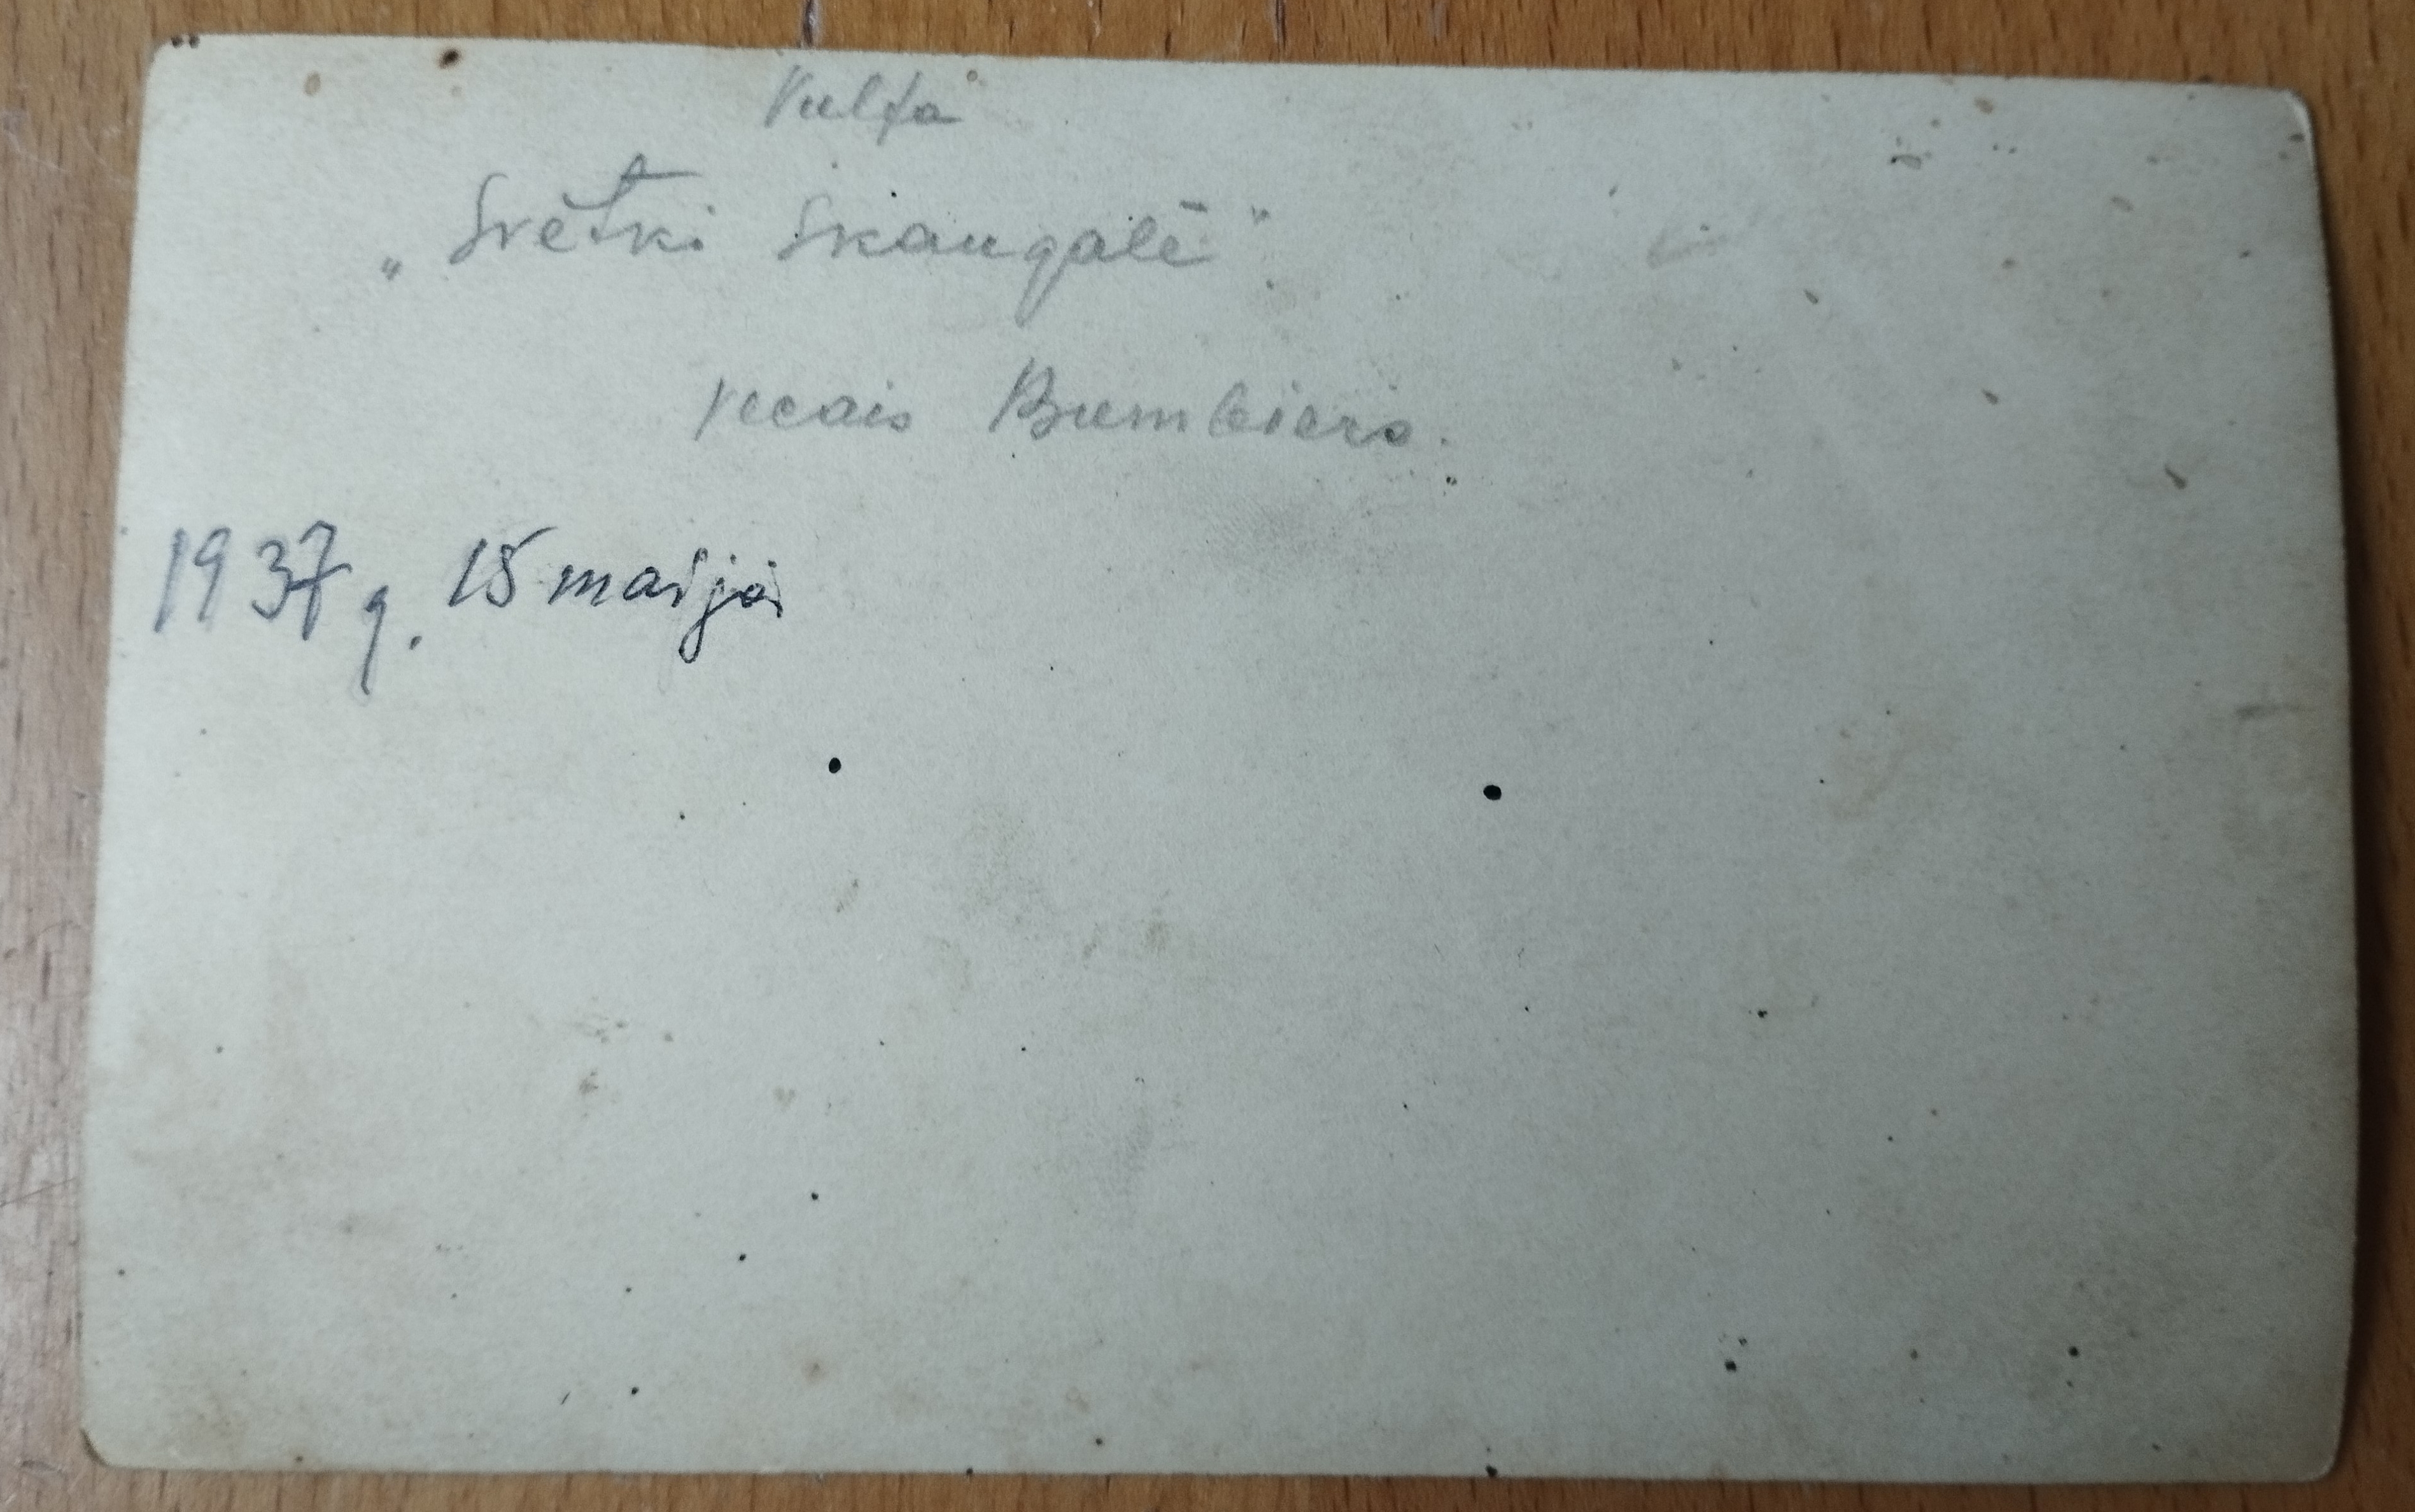 Vulfa
„Svētki Skangalē”.
vecais Bumbiers.
1937 g. 15 maijā